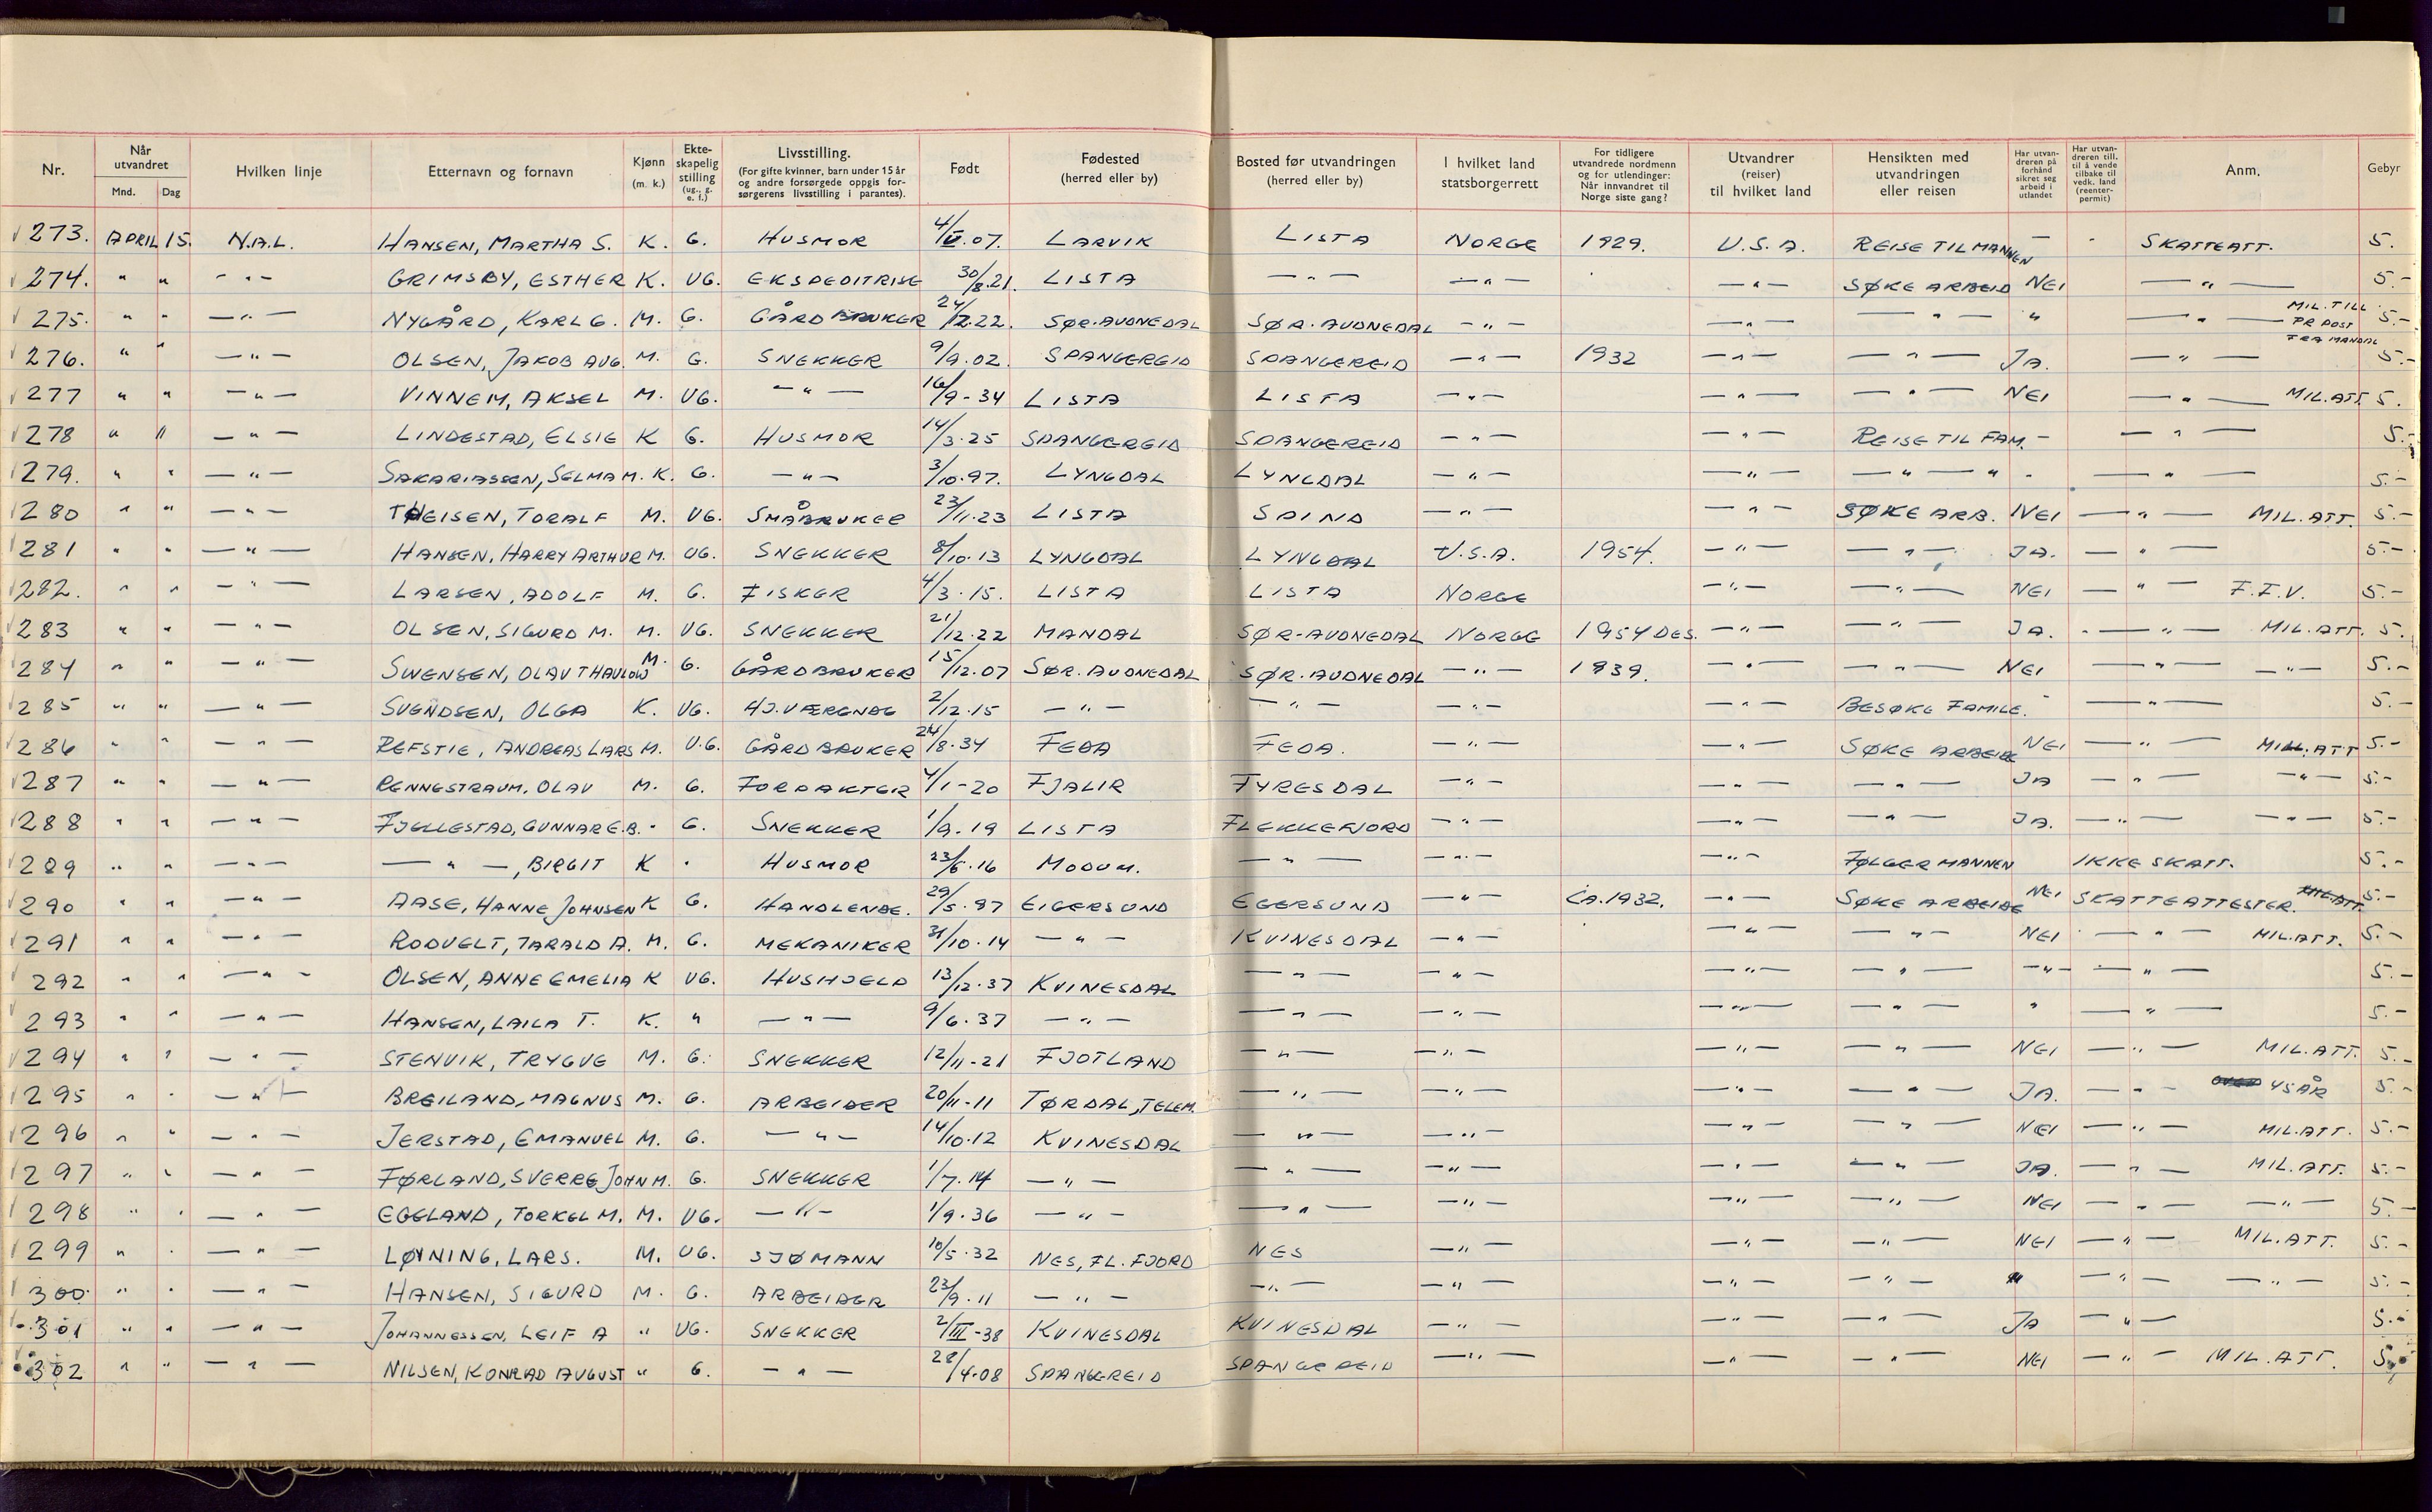 Nr. Når utvandret Mnd. Dag Hvilken linje Etternavn og fornavn Kjønn (m. k.) Ekte- skapelig stilling (ug., g. e. f.) Livsstilling. (For gifte kvinner, barn under 15 år og andre forsørgede oppgis for- sørgerens livsstilling i parantes). Født Fødested (herred eller by) Bosted før utvandringen (herred eller by) I hvilket land statsborgerrett For tidligere utvandrede nordmenn og for utlendinger: Når innvandret til Norge siste gang? Utvandrer (reiser) til hvilket land Hensikten med utvandringen eller reisen Har utvan- dreren på forhånd sikret seg arbeid i utlandet Har utvan- dreren till. til å vende tilbake til vedk. land (reenter- permit) Anm. Gebyr
273. APRIL 15. N.A.L. HANSEN, MARTHA S. K. G. HUSMOR 4/V.07. LARVIK LISTA NORGE 1929. U.S.A. REISE TIL MANNEN — - SKATTEATT. 5.
274. " " - " - GRIMSBY, ESTHER K. UG. EKSPEDITRISE 30/8.21. LISTA — " — — " — — " — SØKE ARBEID NEI — " — 5.-
275. " " — " — NYGÅRD, KARL G. M. G. GÅRDBRUKER 24/12.22. SØR-AUDNEDAL SØR-AUDNEDAL — " — — " — — " — " — " — MIL. TILL PR POST FRA MANDAL 5.-
276. " " — " — OLSEN, JAKOB AUG. M. G. SNEKKER 9/9.02. SPANGEREID SPANGEREID — " — 1932 — " — — " — JA. — " — 5.-
277 " " — " — VINNEM, AKSEL M. UG. — " — 16/9-34 LISTA LISTA — " — — " — — " — NEI — " — MIL. ATT. 5.
278 " " — " — LINDESTAD, ELSIE K G. HUSMOR 14/3.25 SPANGEREID SPANGEREID — " — — " — REISE TIL FAM. — — " — 5.-
279. " " — " — SAKARIASSEN, SELMA M. K. G. — " — 3/10.97. LYNGDAL LYNGDAL — " — — " — — " — " - — " — 5.-
280 " " — " — THEISEN, TORALF M. UG. SMÅBRUKER 23/11.23 LISTA SPIND — " — — " — SØKE ARB. NEI — " — MIL. ATT. 5.-
281 " " — " — HANSEN, HARRY ARTHUR M. UG. SNEKKER 8/10.13 LYNGDAL LYNGDAL U.S.A. 1954. — " — — " — JA. — " — 5.-
282. " " — " — LARSEN, ADOLF M. G. FISKER 4/3.15. LISTA LISTA NORGE — " — — " — NEI — " — F.F.V. 5.-
283 " " — " — OLSEN, SIGURD M. M. UG. SNEKKER 21/12.22 MANDAL SØR-AUDNEDAL NORGE 1954 DES. — " — — " — JA. — " — MIL. ATT. 5.
284 " " — " — SWENSEN, OLAV THAULOW M. G. GÅRDBRUKER 15/12.07 SØR. AUDNEDAL SØR. AUDNEDAL — " — 1939. — " — — " — NEI — " — — " — 5.-
285 " " — " — SVENDSEN, OLGA K. UG. HJ.VÆRENDE 2/12.15 — " — — " — — " — — " — BESØKE FAMILE. - — " — 5.-
286 " " — " — REFSTIE, ANDREAS LARS M. U.G. GÅRDBRUKER 24/8.34 FEDA FEDA. — " — — " — SØKE ARBEIDE NEI — " — MIL. ATT 5.-
287 " " — " — RENNESTRAUM, OLAV M. G. FORPAKTER 4/1-20 FJALIR FYRESDAL — " — — " — — " — JA — " — — " — 5.-
288 " " — " — FJELLESTAD, GUNNAR E.B. - G. SNEKKER 1/9.19 LISTA FLEKKEFJORD — " — — " — — " — JA. — " — — " — 5.-
289 " " — " — — " —, BIRGIT K " HUSMOR 23/5.16 MODUM. — " — — " — — " — FØLGER MANNEN IKKE SKATT. 5.-
290 " " — " — AASE, HANNE JOHNSEN K G. HANDLENDE. 29/5.97 EIGERSUND EGERSUND — " — CA. 1932. — " — SØKE ARBEIDE NEI SKATTEATTESTER. MIL ATT. 5.-
291 " " — " — RODVELT, TARALD A. M. G. MEKANIKER 31/10.14 — " — KVINESDAL — " — — " — — " — NEI — " — MIL. ATT. 5.-
292 " " — " — OLSEN, ANNE EMELIA K UG. HUSHJELP 13/12.37 KVINESDAL — " — — " — — " — — " — — " — — " — 5.-
293 " " — " — HANSEN, LAILA T. K. " — " — 9/6.37 — " — — " — — " — — " — — " — " — " — 5.-
294 " " — " — STENVIK, TRYGVE M. G. SNEKKER 12/11-21 FJOTLAND — " — — " — — " — — " — NEI — " — MIL. ATT. 5.-
295 " " — " — BREILAND, MAGNUS M. G. ARBEIDER 20/11-11 TØRDAL, TELEM. — " — — " — — " — — " — JA. — " — 45 ÅR 5.-
296 " " — " — JERSTAD, EMANUEL M. G. — " — 14/10.12 KVINESDAL — " — — " — — " — — " — NEI — " — MIL. ATT. 5.-
297 " " — " — FØRLAND, SVERRE JOHN M. G. SNEKKER 1/7.14 — " — — " — — " — — " — — " — JA. — " — MIL. ATT. 5.-
298 " " — " — EGELAND, TORKEL M. M. UG. — " — 1/9.36 — " — — " — — " — — " — — " — NEI — " — — " — 5.-
299 " " — " — LØVNING, LARS. M. UG. SJØMANN 10/5.32 NES, FL. FJORD NES — " — — " — — " — NEI — " — MIL. ATT. 5.-
300. " " — " — HANSEN, SIGURD M. G. ARBEIDER 23/9.11 — " — — " — — " — — " — — " — " — " — — " — 5.-
301 " " — " — JOHANNESSEN, LEIF A " UG. SNEKKER 2/III-38 KVINESDAL KVINESDAL — " — — " — — " — JA — " — 5.-
302 " " — " — NILSEN, KONRAD AUGUST " G. — " — 28/4.08 SPANGEREID SPANGEREID — " — — " — — " — NEI — " — MIL. ATT. 5.-